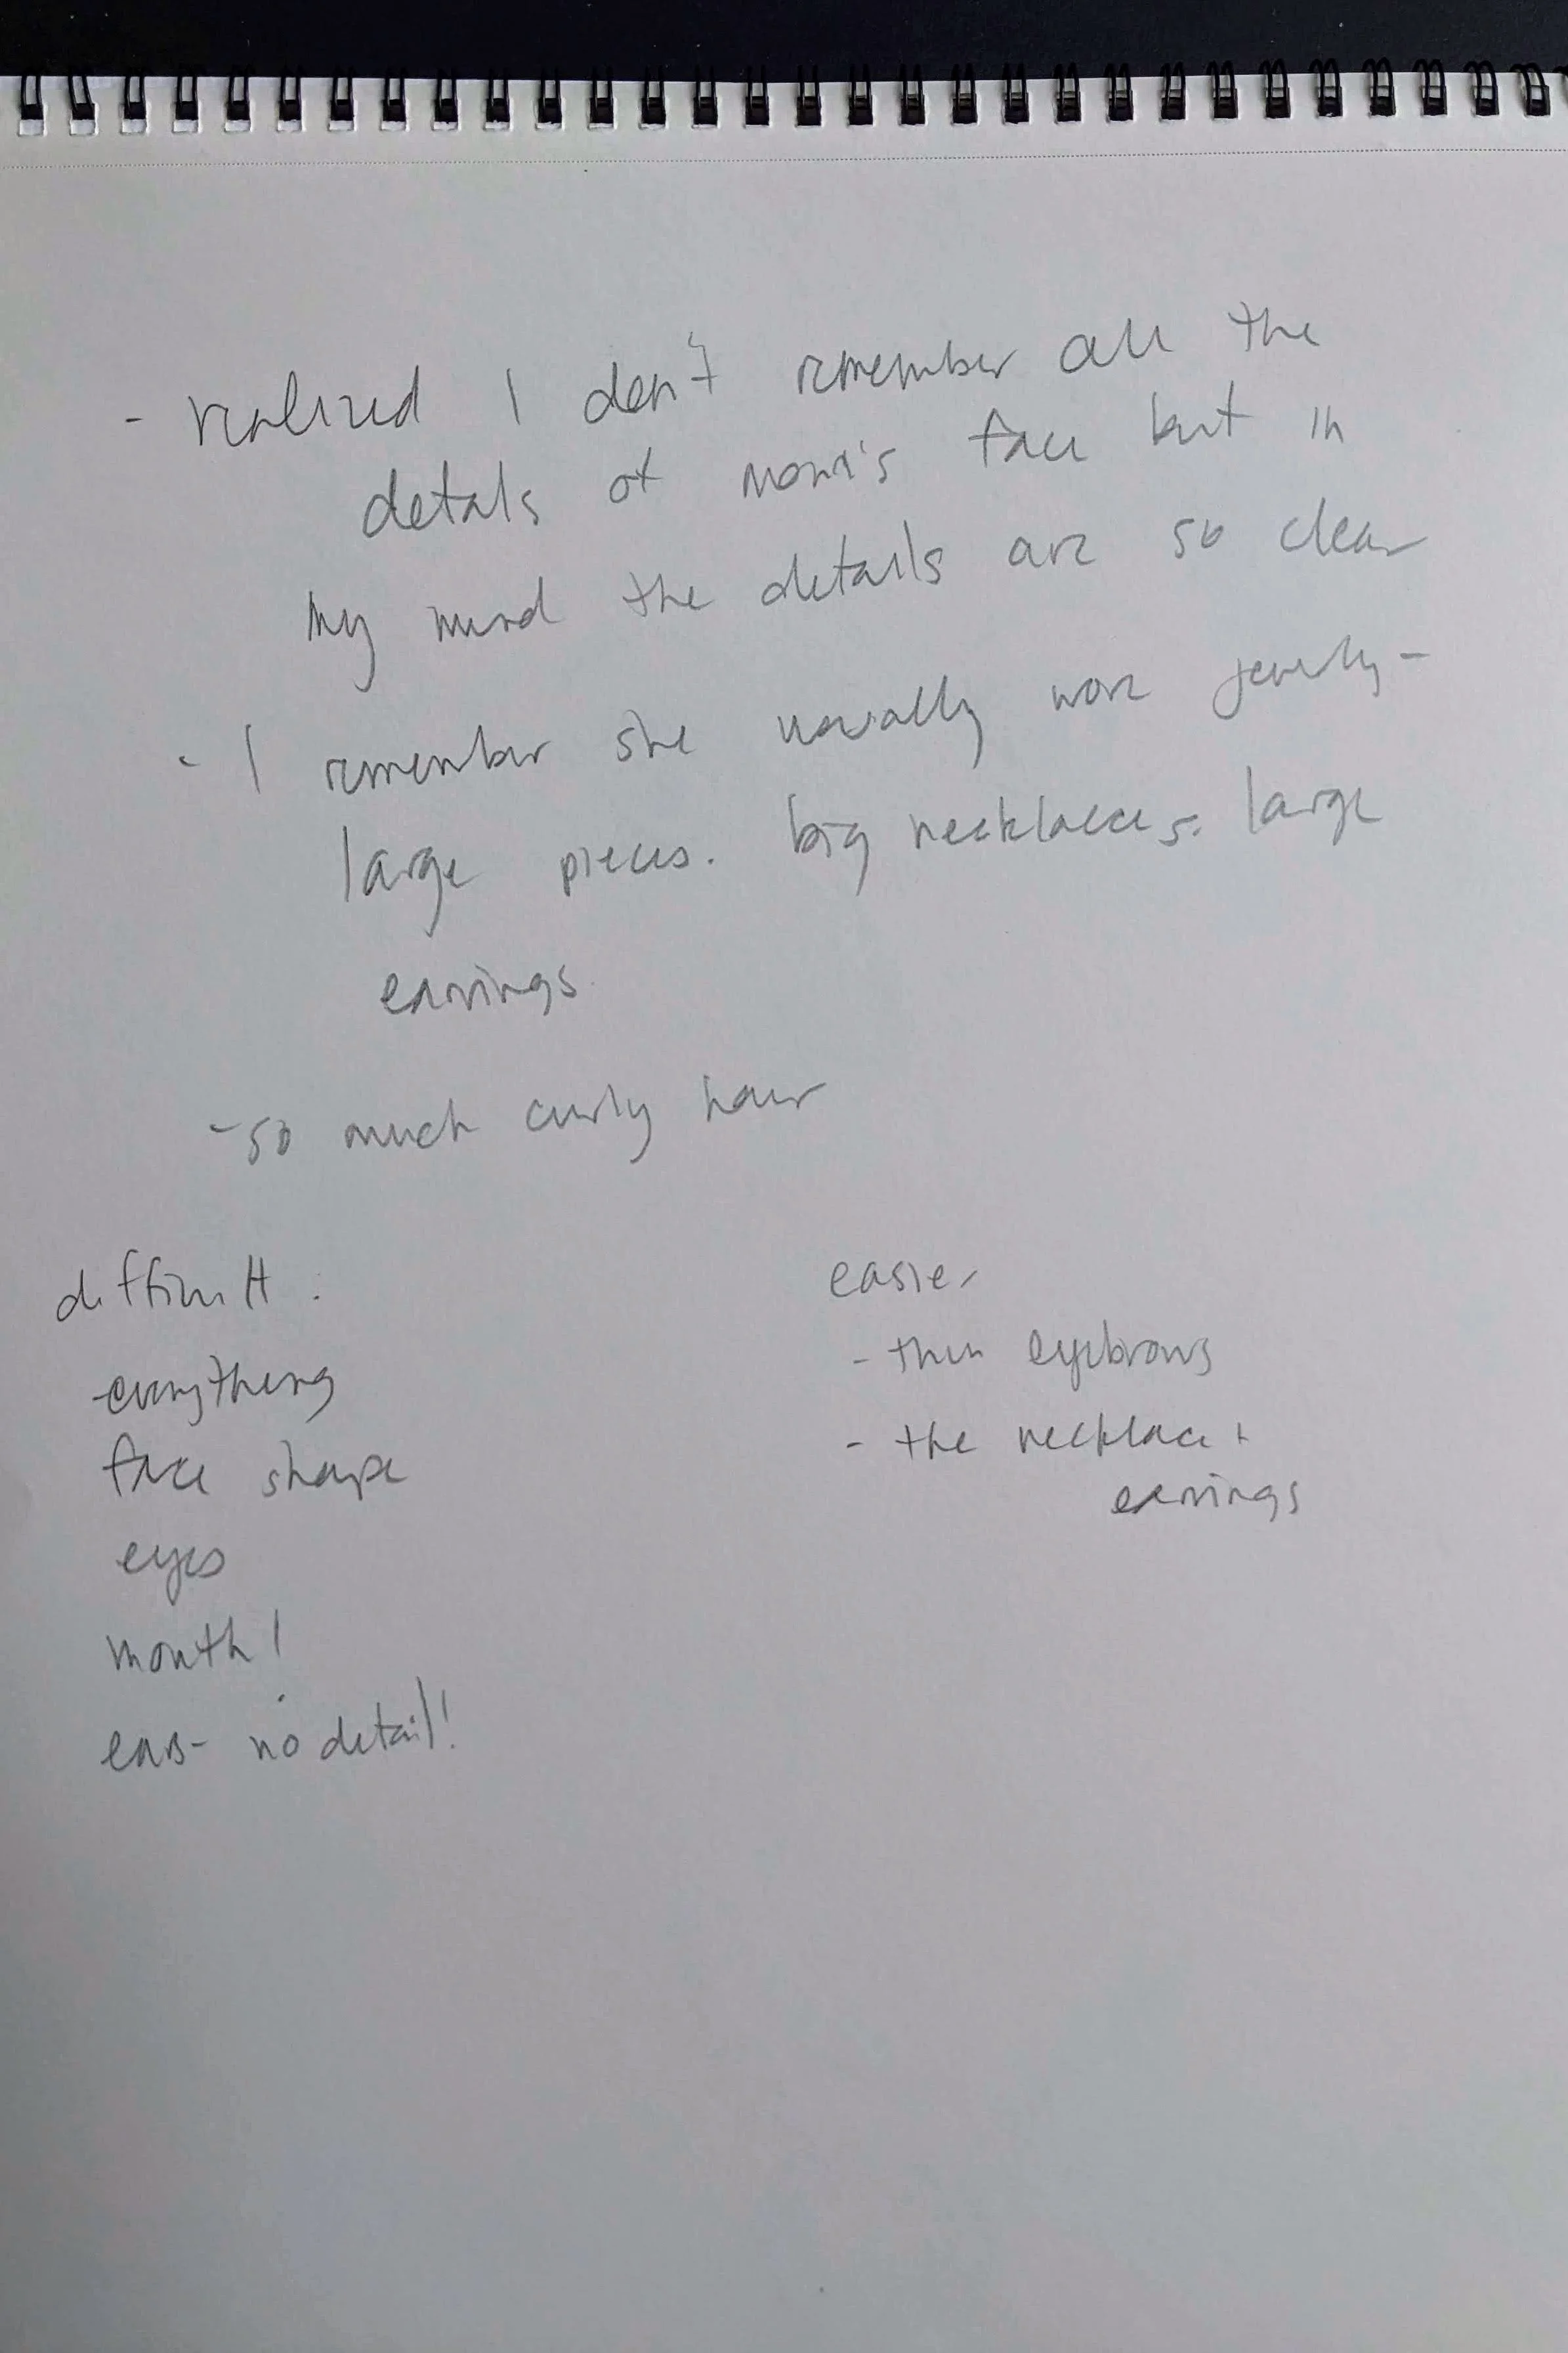 - realized I don't remember all the
details of mom's face but in
my mind the details are so clear
- I remember she usually wore jewelry -
large pieces. big necklaces. large
earrings.
- so much curly hair
difficult:
- everything
face shape
eyes
mouth!
ears - no detail!
easier
- thin eyebrows
- the necklace +
earrings